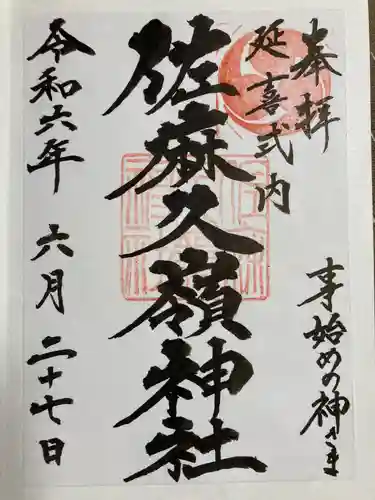 奉拝
延喜式内
事始めの神さま
佐麻久嶺神社
令和六年 六月 二十七日